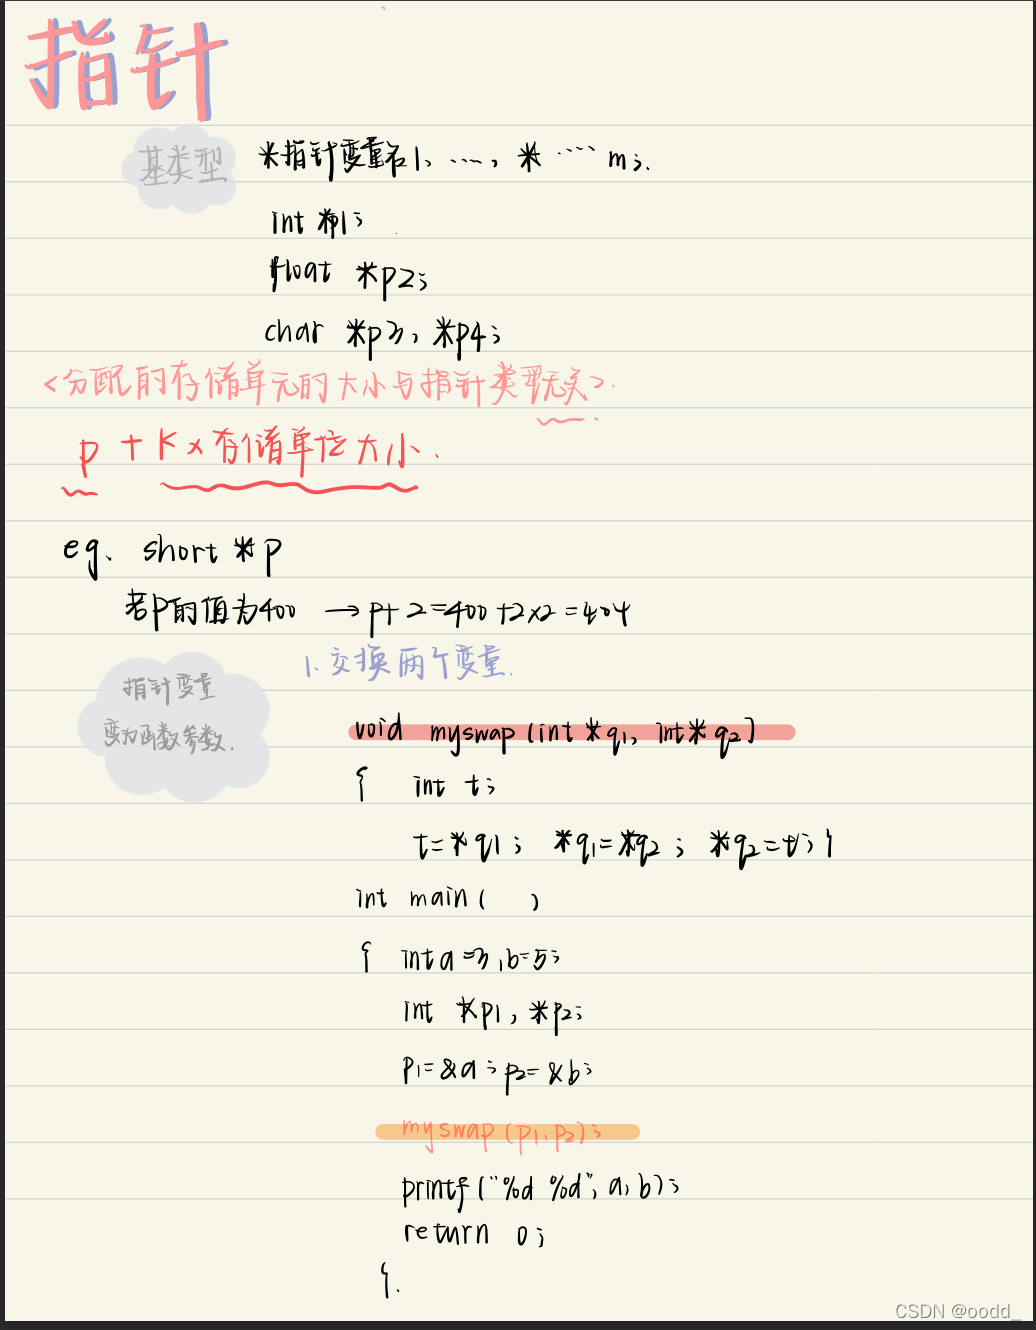 指针
基类型 *指针变量名1, ...., * .... m;.
int *p1;
float *p2;
char *p3, *p4;
<分配的存储单元的大小与指针类型无关>.
p + K × 存储单位大小.
eg. short *p
若p的值为400 → p+2=400+2×2=404
1.交换两个变量.
指针变量
变为函数参数.
void myswap (int *q1, int *q2)
{ int t;
t=*q1; *q1=*q2; *q2=t; }
int main( )
{ int a=3,b=5;
int *p1, *p2;
p1=&a; p2=&b;
myswap (p1,p2);
printf ("%d %d", a,b);
return 0;
}.
CSDN @oodd_